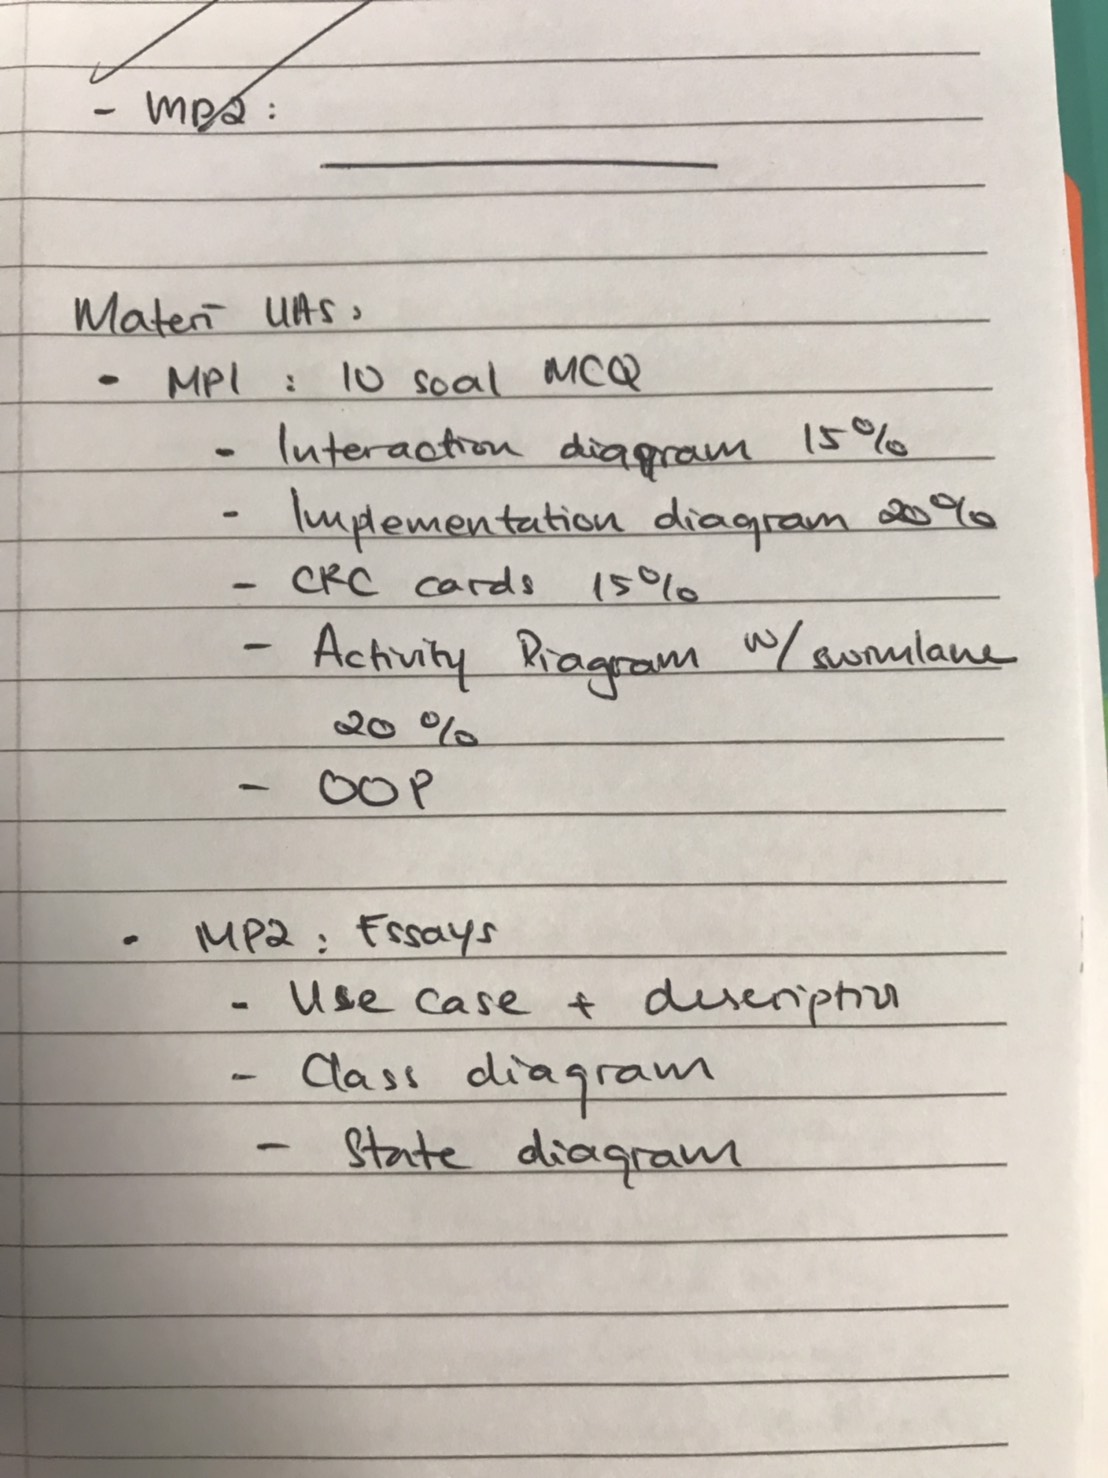 - MP2:
Materi UAS:
- MP1 : 10 soal MCQ
- Interaction diagram 15%
- Implementation diagram 20%
- CRC cards 15%
- Activity Diagram w/ swimlane
20%
- OOP
- MP2 : Essays
- Use case + description
- Class diagram
- State diagram